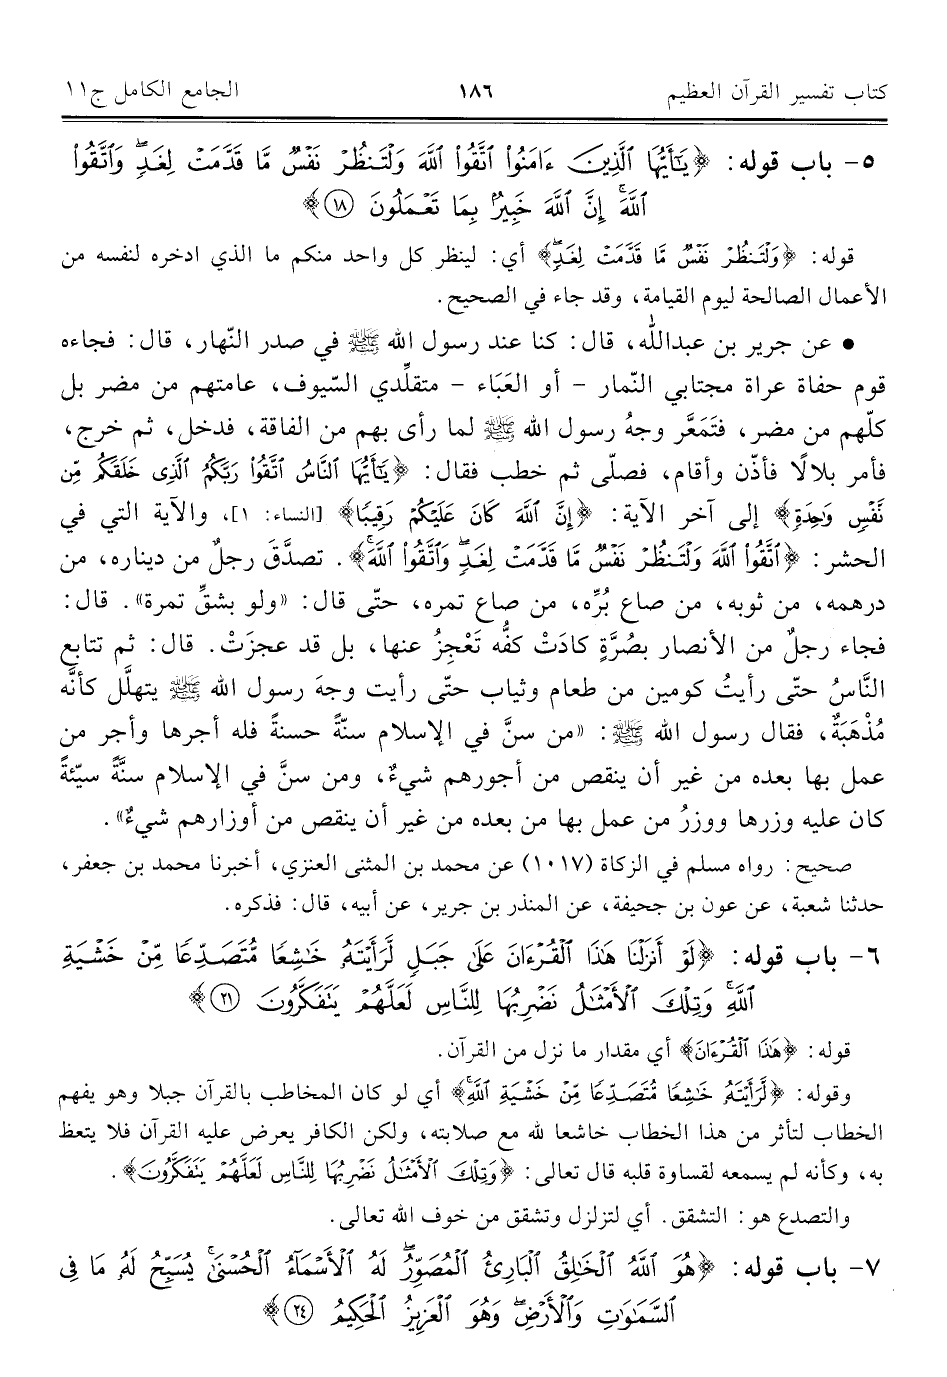 كتاب تفسير القرآن العظيم ١٨٦ الجامع الكامل ج١١
٥- باب قوله: ﴿يَٰٓأَيُّهَا ٱلَّذِينَ ءَامَنُوا۟ ٱتَّقُوا۟ ٱللَّهَ وَلْتَنظُرْ نَفْسٌ مَّا قَدَّمَتْ لِغَدٍ ۖ وَٱتَّقُوا۟
ٱللَّهَ ۚ إِنَّ ٱللَّهَ خَبِيرٌۢ بِمَا تَعْمَلُونَ ١٨﴾
قوله: ﴿وَلْتَنظُرْ نَفْسٌ مَّا قَدَّمَتْ لِغَدٍ ۖ﴾ أي: لينظر كل واحد منكم ما الذي ادخره لنفسه من
الأعمال الصالحة ليوم القيامة، وقد جاء في الصحيح.
• عن جرير بن عبدالله، قال: كنا عند رسول الله ﷺ في صدر النّهار، قال: فجاءه
قوم حفاة عراة مجتابي النّمار - أو العَبَاء - متقلِّدي السّيوف، عامتهم من مضر بل
كلّهم من مضر، فتَمَعَّر وجهُ رسول الله ﷺ لما رأى بهم من الفاقة، فدخل، ثم خرج،
فأمر بلالًا فأذّن وأقام، فصلّى ثم خطب فقال: ﴿يَٰٓأَيُّهَا ٱلنَّاسُ ٱتَّقُوا۟ رَبَّكُمُ ٱلَّذِى خَلَقَكُم مِّن
نَّفْسٍ وَٰحِدَةٍ﴾ إلى آخر الآية: ﴿إِنَّ ٱللَّهَ كَانَ عَلَيْكُمْ رَقِيبًا﴾ [النساء: ١]، والآية التي في
الحشر: ﴿ٱتَّقُوا۟ ٱللَّهَ وَلْتَنظُرْ نَفْسٌ مَّا قَدَّمَتْ لِغَدٍ ۖ وَٱتَّقُوا۟ ٱللَّهَ ۚ﴾. تصدَّقَ رجلٌ من ديناره، من
درهمه، من ثوبه، من صاع بُرِّه، من صاع تمره، حتّى قال: «ولو بشقِّ تمرة». قال:
فجاء رجلٌ من الأنصار بصُرَّةٍ كادَتْ كفُّه تَعْجِزُ عنها، بل قد عجزَتْ. قال: ثم تتابع
النَّاسُ حتّى رأيتُ كومين من طعام وثياب حتّى رأيت وجهَ رسول الله ﷺ يتهلَّل كأنَّه
مُذْهَبَةٌ، فقال رسول الله ﷺ: «من سنَّ في الإسلام سنّةً حسنةً فله أجرها وأجر من
عمل بها بعده من غير أن ينقص من أجورهم شيءٌ، ومن سنَّ في الإسلام سنَّةً سيّئةً
كان عليه وزرها ووزرُ من عمل بها من بعده من غير أن ينقص من أوزارهم شيءٌ».
صحيح: رواه مسلم في الزكاة (١٠١٧) عن محمد بن المثنى العنزي، أخبرنا محمد بن جعفر،
حدثنا شعبة، عن عون بن جحيفة، عن المنذر بن جرير، عن أبيه، قال: فذكره.
٦- باب قوله: ﴿لَوْ أَنزَلْنَا هَٰذَا ٱلْقُرْءَانَ عَلَىٰ جَبَلٍ لَّرَأَيْتَهُۥ خَٰشِعًا مُّتَصَدِّعًا مِّنْ خَشْيَةِ
ٱللَّهِ ۚ وَتِلْكَ ٱلْأَمْثَٰلُ نَضْرِبُهَا لِلنَّاسِ لَعَلَّهُمْ يَتَفَكَّرُونَ ٢١﴾
قوله: ﴿هَٰذَا ٱلْقُرْءَانَ﴾ أي مقدار ما نزل من القرآن.
وقوله: ﴿لَّرَأَيْتَهُۥ خَٰشِعًا مُّتَصَدِّعًا مِّنْ خَشْيَةِ ٱللَّهِ ۚ﴾ أي لو كان المخاطب بالقرآن جبلا وهو يفهم
الخطاب لتأثر من هذا الخطاب خاشعا لله مع صلابته، ولكن الكافر يعرض عليه القرآن فلا يتعظ
به، وكأنه لم يسمعه لقساوة قلبه قال تعالى: ﴿وَتِلْكَ ٱلْأَمْثَٰلُ نَضْرِبُهَا لِلنَّاسِ لَعَلَّهُمْ يَتَفَكَّرُونَ﴾.
والتصدع هو: التشقق. أي لتزلزل وتشقق من خوف الله تعالى.
٧- باب قوله: ﴿هُوَ ٱللَّهُ ٱلْخَٰلِقُ ٱلْبَارِئُ ٱلْمُصَوِّرُ ۖ لَهُ ٱلْأَسْمَآءُ ٱلْحُسْنَىٰ ۚ يُسَبِّحُ لَهُۥ مَا فِى
ٱلسَّمَٰوَٰتِ وَٱلْأَرْضِ ۖ وَهُوَ ٱلْعَزِيزُ ٱلْحَكِيمُ ٢٤﴾